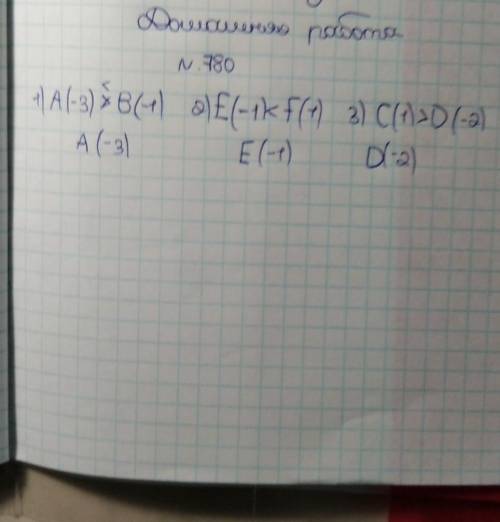 Домашняя работа
N. 780
1) A(-3) < B(-1) 2) E(-1)< F(1) 3) C(1)>D(-2)
A(-3) E(-1) D(-2)